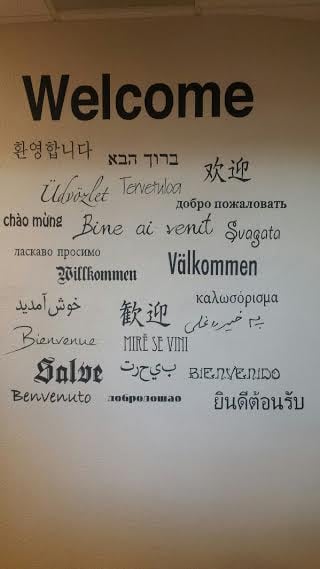 Welcome
환영합니다 ברוך הבא 欢迎
Üdvözlet Tervetuloa
добро пожаловать
chào mừng Bine ai venit Svagata
ласкаво просимо
Willkommen Välkommen
خوش آمدید 歡迎 καλωσόρισμα
په خیر راغلی
Bienvenue MIRË SE VINI
Salve بيحرت BIENVENIDO
Benvenuto добродошао ยินดีต้อนรับ